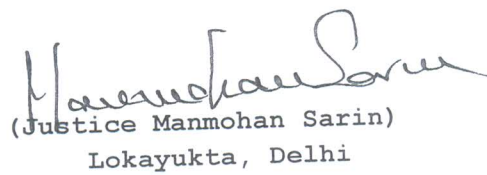 Manmohan Sarin
(Justice Manmohan Sarin)
Lokayukta, Delhi